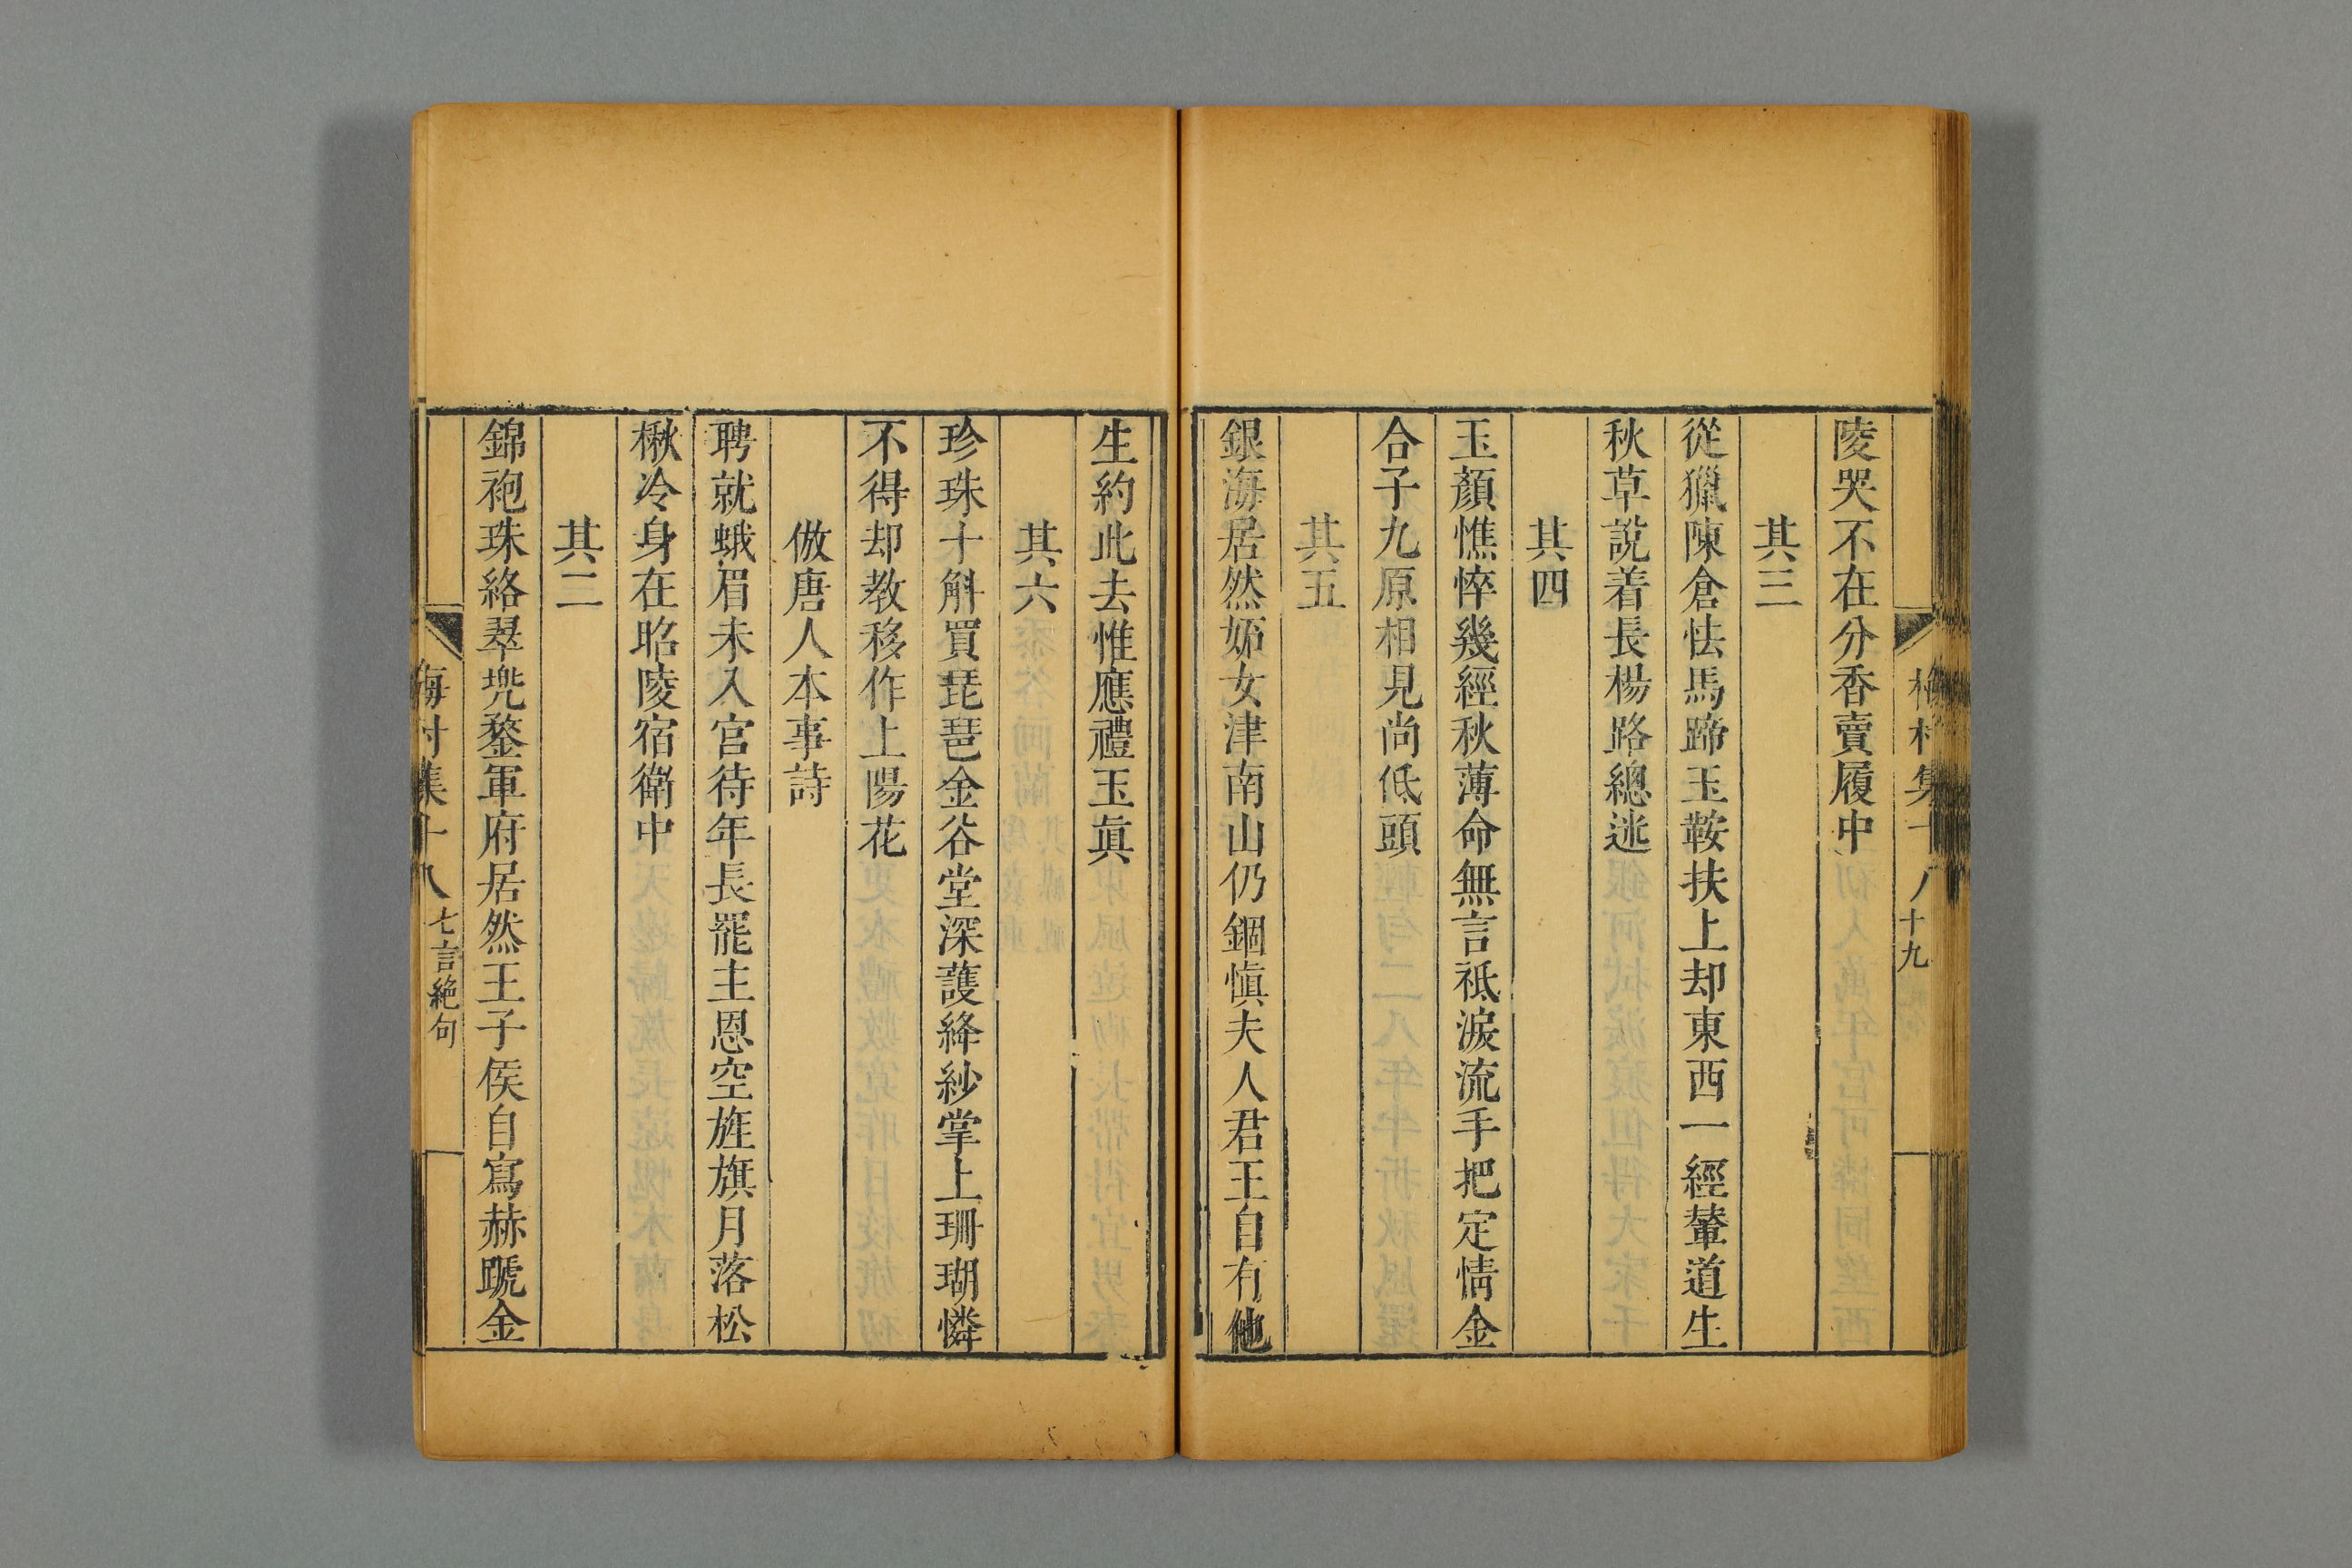 梅村集十八十九
陵哭不在分香賣履中
其三
從獵陳倉怯馬蹄玉鞍扶上却東西一經輦道生
秋草說着長楊路總迷
其四
玉顏憔悴幾經秋薄命無言衹淚流手把定情金
合子九原相見尚低頭
其五
銀海居然妬女津南山仍錮慎夫人君王自有他
生約此去惟應禮玉真
其六
珍珠十斛買琵琶金谷堂深護絳紗掌上珊瑚憐
不得却教移作上陽花
倣唐人本事詩
聘就蛾眉未入宮待年長罷主恩空旌旗月落松
楸冷身在昭陵宿衛中
其二
錦袍珠絡翠兜鍪軍府居然王子侯自寫赫蹏金
梅村集十八七言絶句